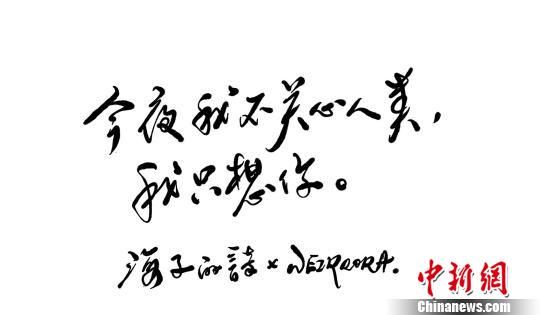 今夜我不关心人类，
我只想你。
海子的詩 ×
中新網
Chinanews.com